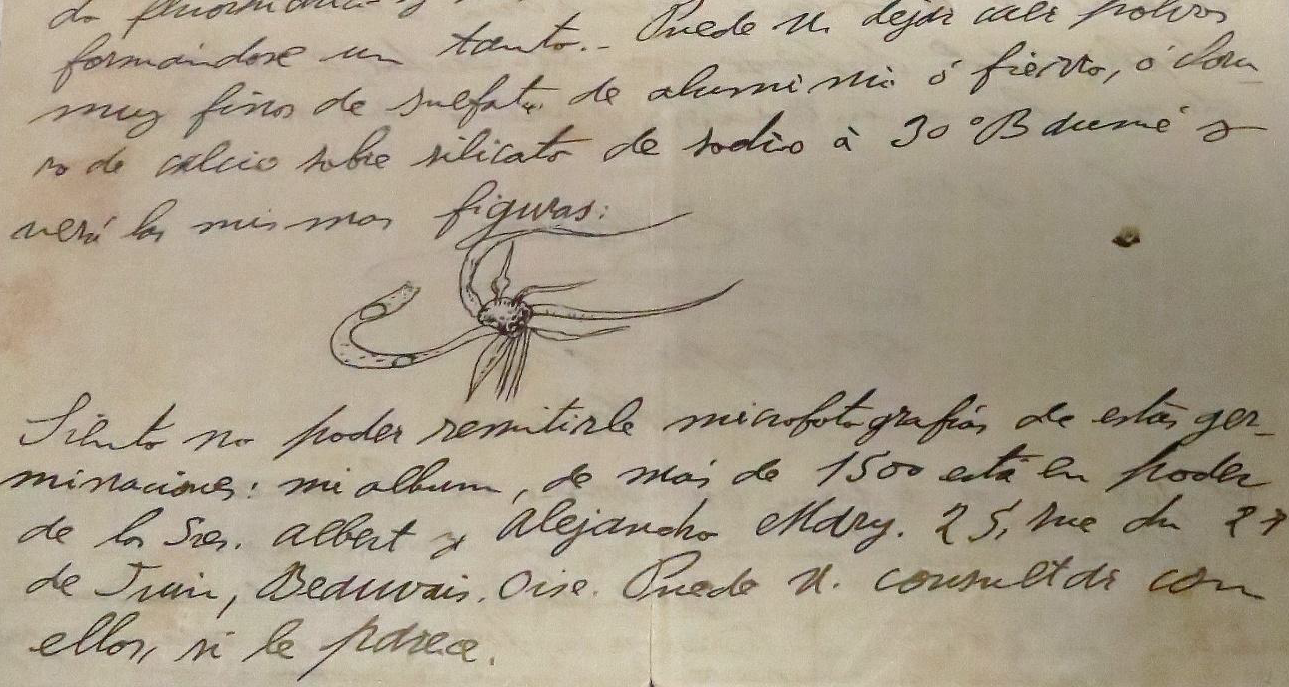 formandose un tanto.- Puede U. dejar caer polvos
muy finos de sulfato de aluminio ó fierro, ó cloru-
ro de calcio sobre silicato de sodio à 30°Baumé y
verá las mismas figuras:
Siento no poder remitirle microfotografias de estas ger-
minaciones: mi album, de más de 1500 está en poder
de los Sres. Albert y Alejandro Mary. 25, rue du 27
de Juin, Beauvais. Oise. Puede U. consultar con
ellos, si le parece.